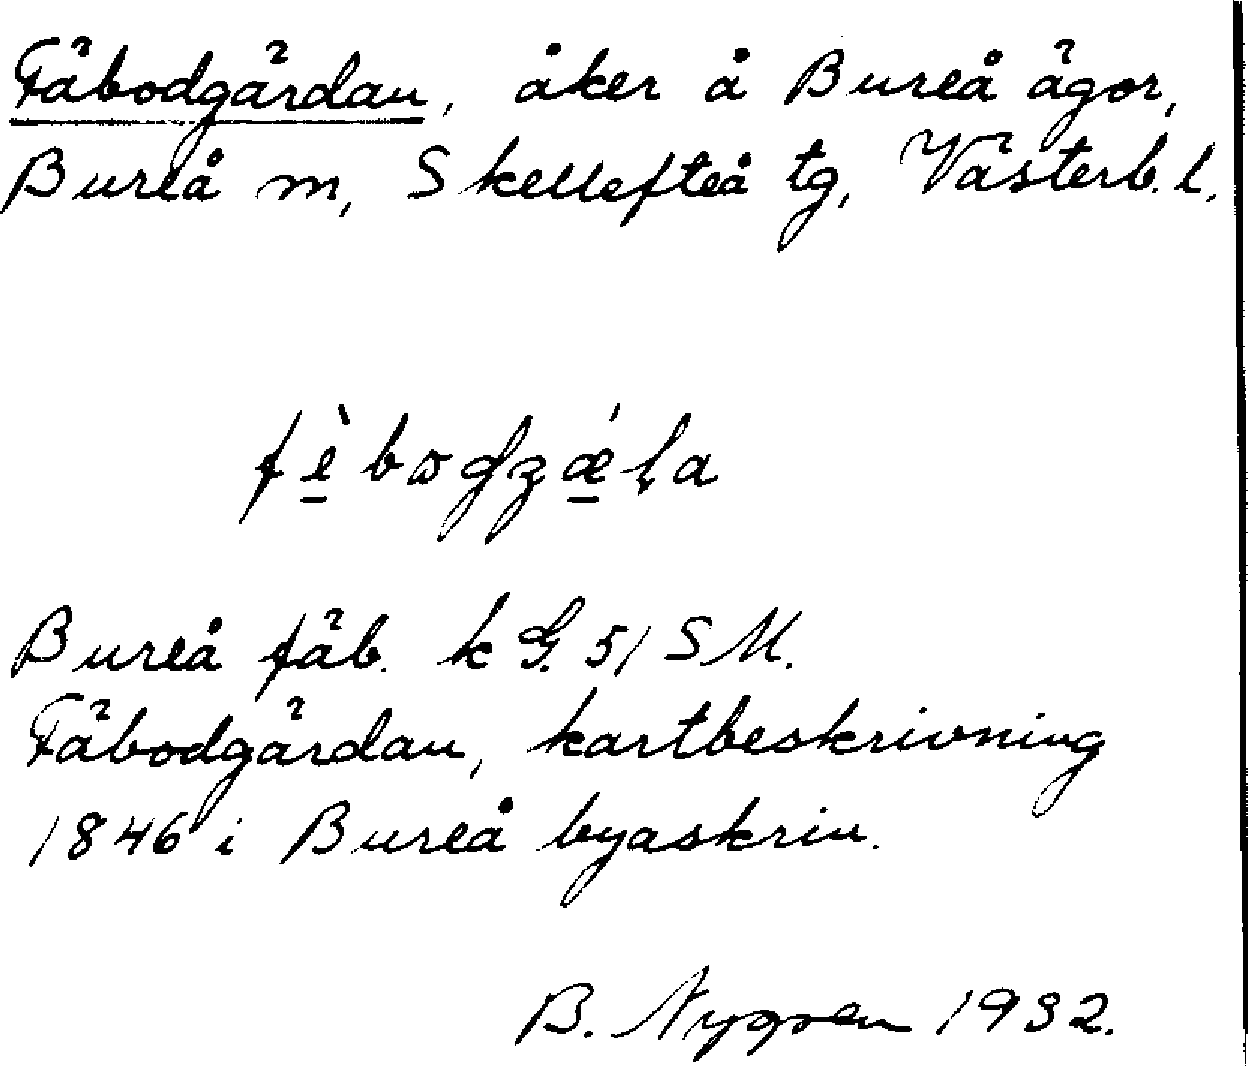 Fäbodgärdan, åker å Bureå ägor,
Bureå m, Skellefteå tg, Västerb. l.
Bureå fäb. k G. 51 SM.
Fäbodgärdan, kartbeskrivning
1846 i Bureå byaskrin.
B. Nygren 1932.